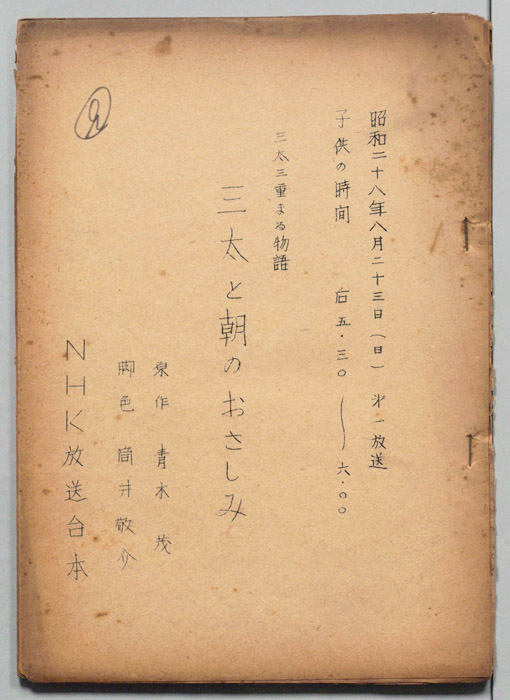 昭和二十八年八月二十三日(日) 才一放送
子供の時間 后五・三〇〜六・〇〇
三太三重まる物語
三太と朝のおさしみ
原作 青木茂
脚色 筒井敬介
NHK放送台本
2